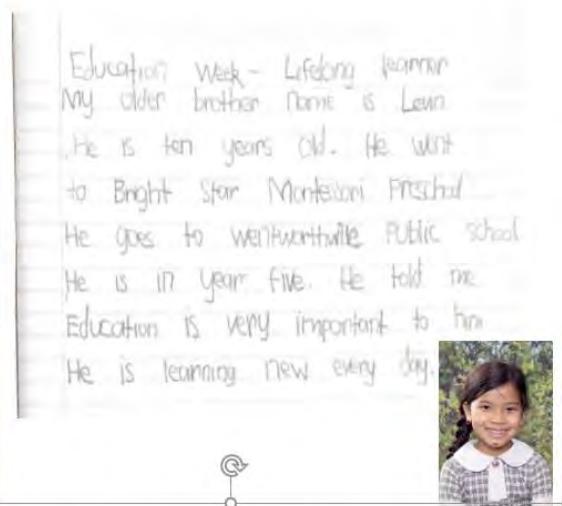 Education Week - Lifelong learner
My older brother name is Levin
.He is ten years old. He went
to Bright Star Montessori Preschol
He goes to Wentworthville Public school
He is in year five. He told me
Education is very important to him
He is learning new every day.